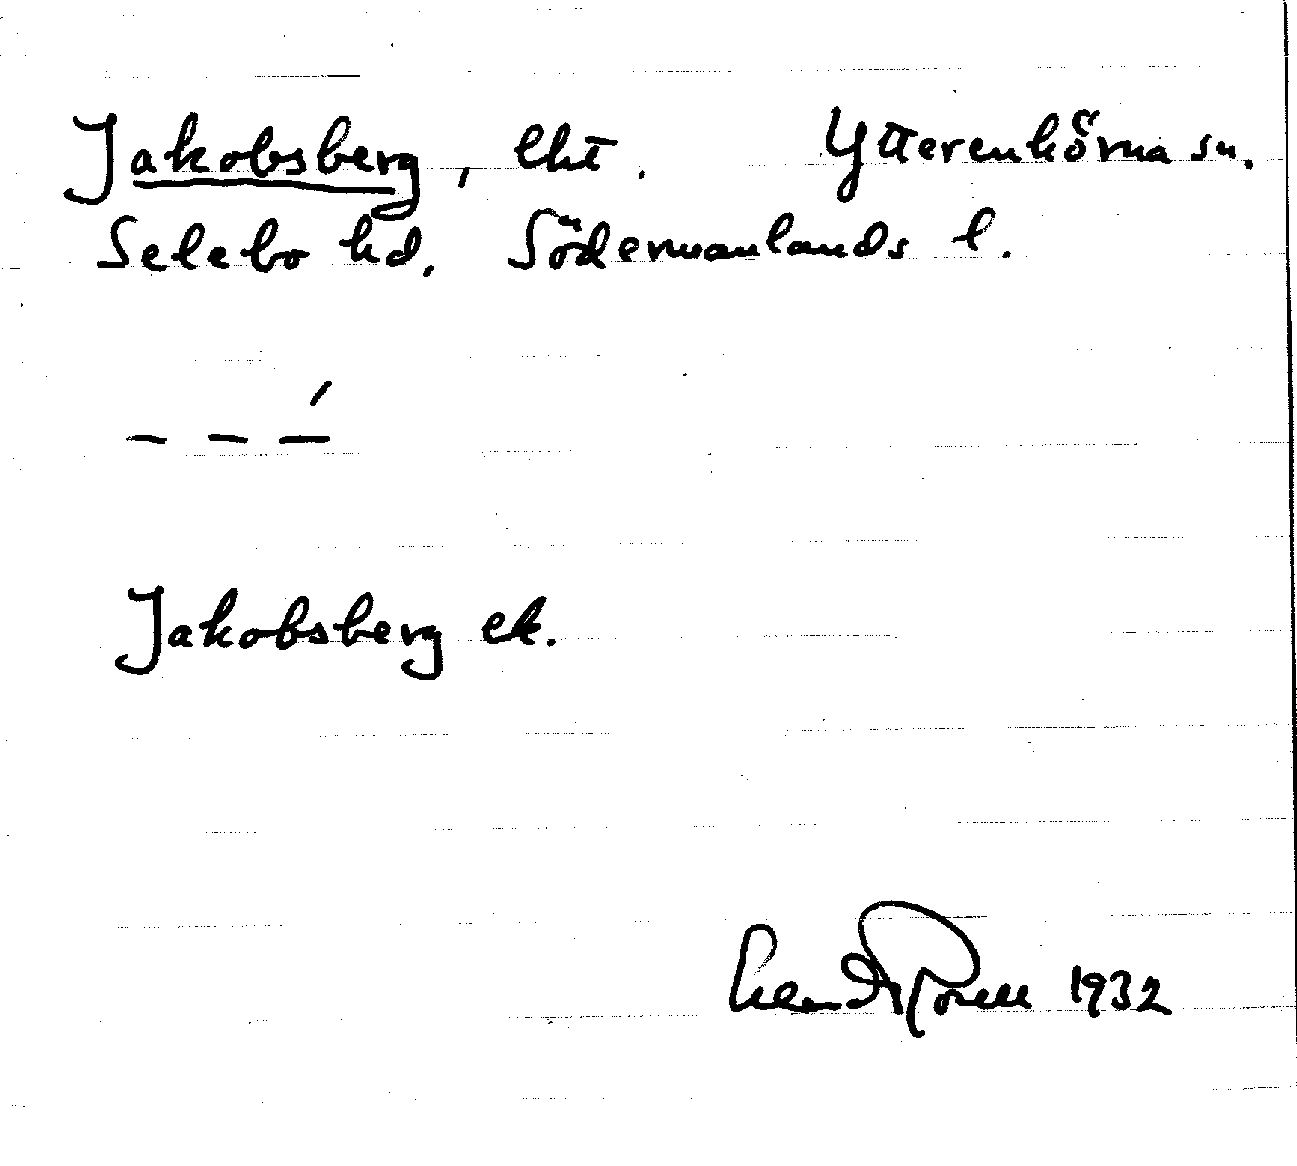 Jakobsberg, lht. Ytterenhörna sn.
Selebo hd. Södermanlands l.
– – –́
Jakobsberg ek.
1932